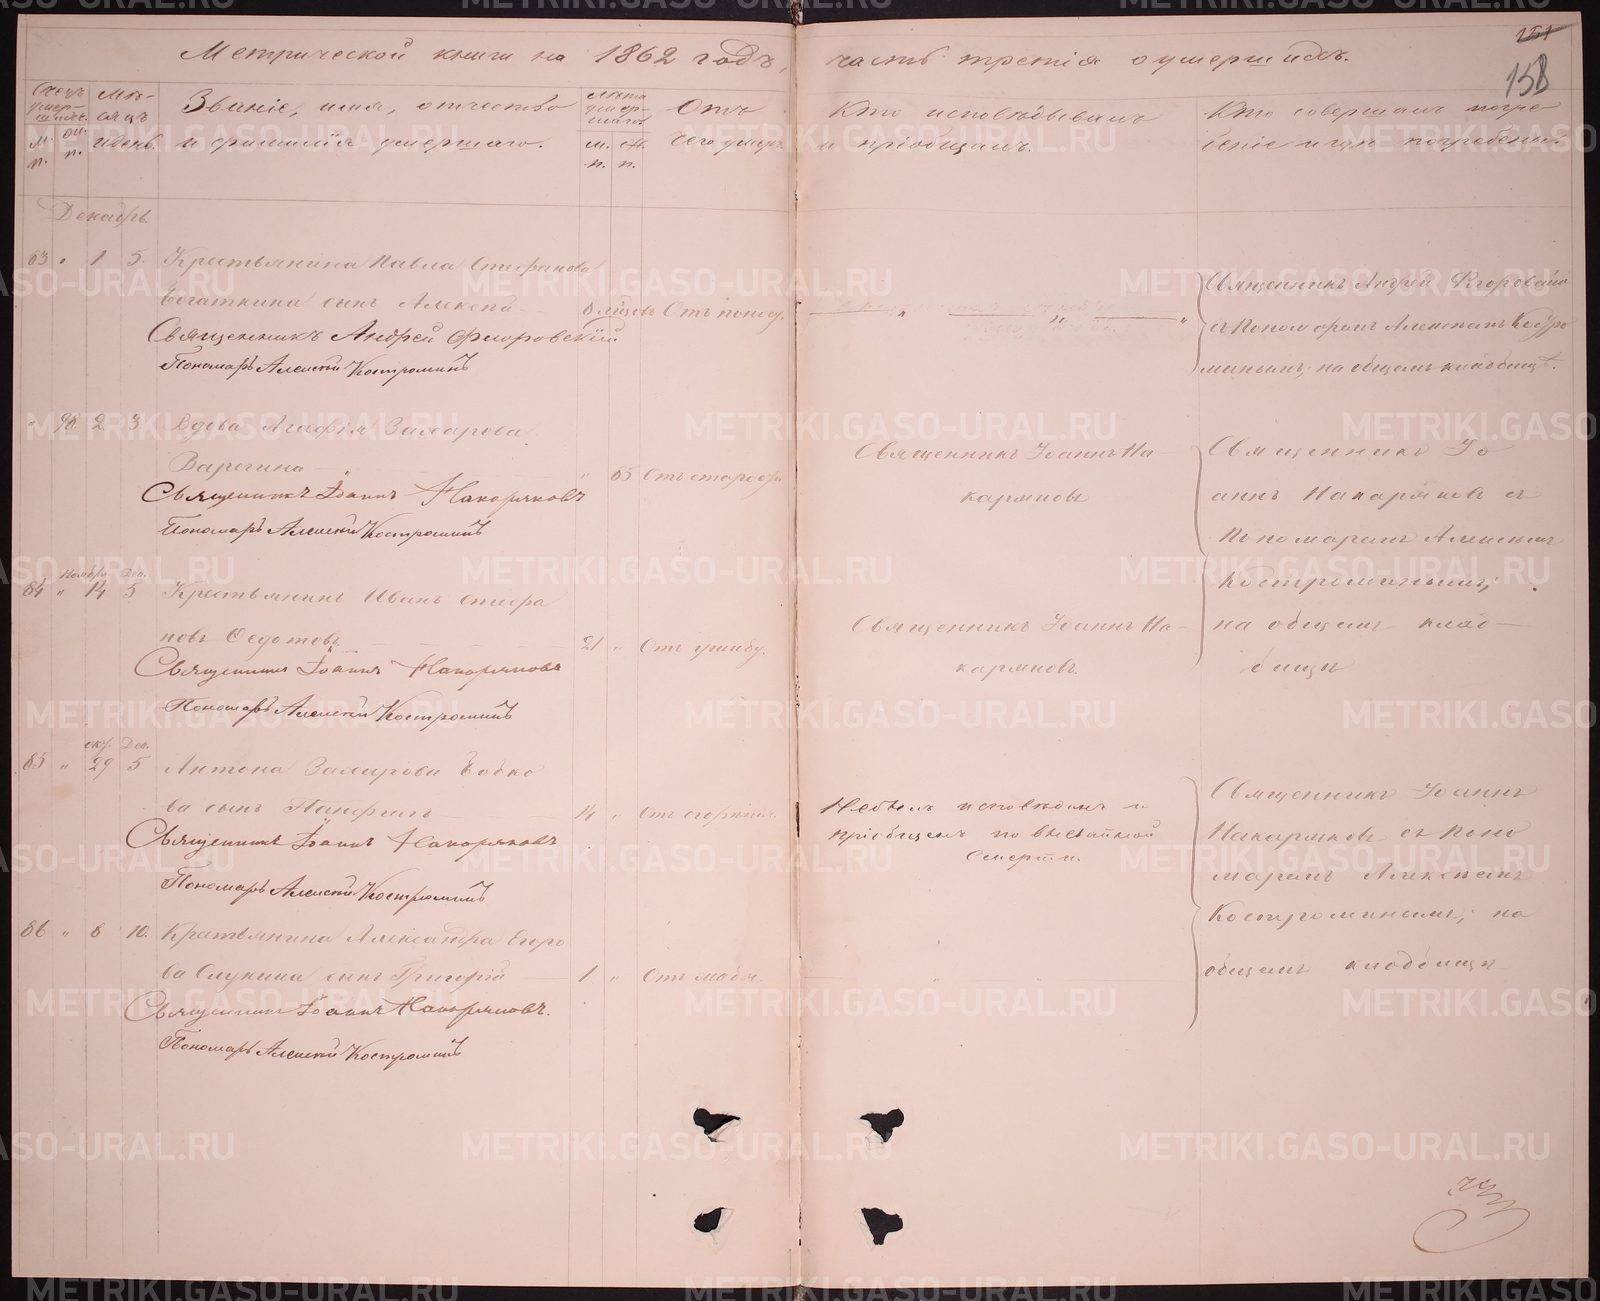 Метрической книги на 1862 годъ, часть третія о умершихъ.
151
158
Счетъ умер-шихъ.
м. п.
Мѣ-сяцъ
и день
Званіе, имя, отчество
и фамилія умершаго.
Лѣта умер-шаго
м. п.
Отъ
чего умеръ
Кто исповѣдывалъ
и пріобщалъ.
Кто совершалъ погре-
беніе и гдѣ погребены.
Декабрь.
83 " 1 5. Крестьянина Павла Стефанова
Богаткина сынъ Алексѣй
Отъ поносу.
Священникъ Андрей Флоровскій
Пономарь Алексѣй Костроминъ
Священникъ Андрей Флоровскій
съ Пономаремъ Алексѣемъ Костро
минымъ; на общемъ кладбищѣ.
" 98 2 3 Вдова Агафія Захарова
Варегина
" 65 Отъ старости
Священникъ Іоаннъ Накаряковъ
Пономарь Алексѣй Костроминъ
Священникъ Іоаннъ На-
каряковъ
Священникъ Іо
аннъ Накаряковъ съ
Пономаремъ Алексѣемъ
Костроминымъ;
на общемъ клад-
бищѣ
Ноября Дек.
84 " 14 5 Крестьянинъ Иванъ Стефа
новъ Федотовъ
21 " Отъ ушибу.
Священникъ Іоаннъ Накаряковъ
Пономарь Алексѣй Костроминъ
Священникъ Іоаннъ На-
каряковъ.
окт. Дек.
85 " 29 5 Антона Захарова Бобко
ва сынъ Панфилъ
14 "
Священникъ Іоаннъ Накаряковъ
Пономарь Алексѣй Костроминъ
Небылъ исповѣданъ и
пріобщенъ по внезапной
смерти.
Священникъ Іоаннъ
Накаряковъ съ Поно
маремъ Алексѣемъ
Костроминымъ; на
общемъ кладбищѣ
86 " 8 10. Крестьянина Александра Егоро
ва Слукина сынъ Григорій
1 "
Священникъ Іоаннъ Накаряковъ.
Пономарь Алексѣй Костроминъ
METRIKI.GASO-URAL.RU